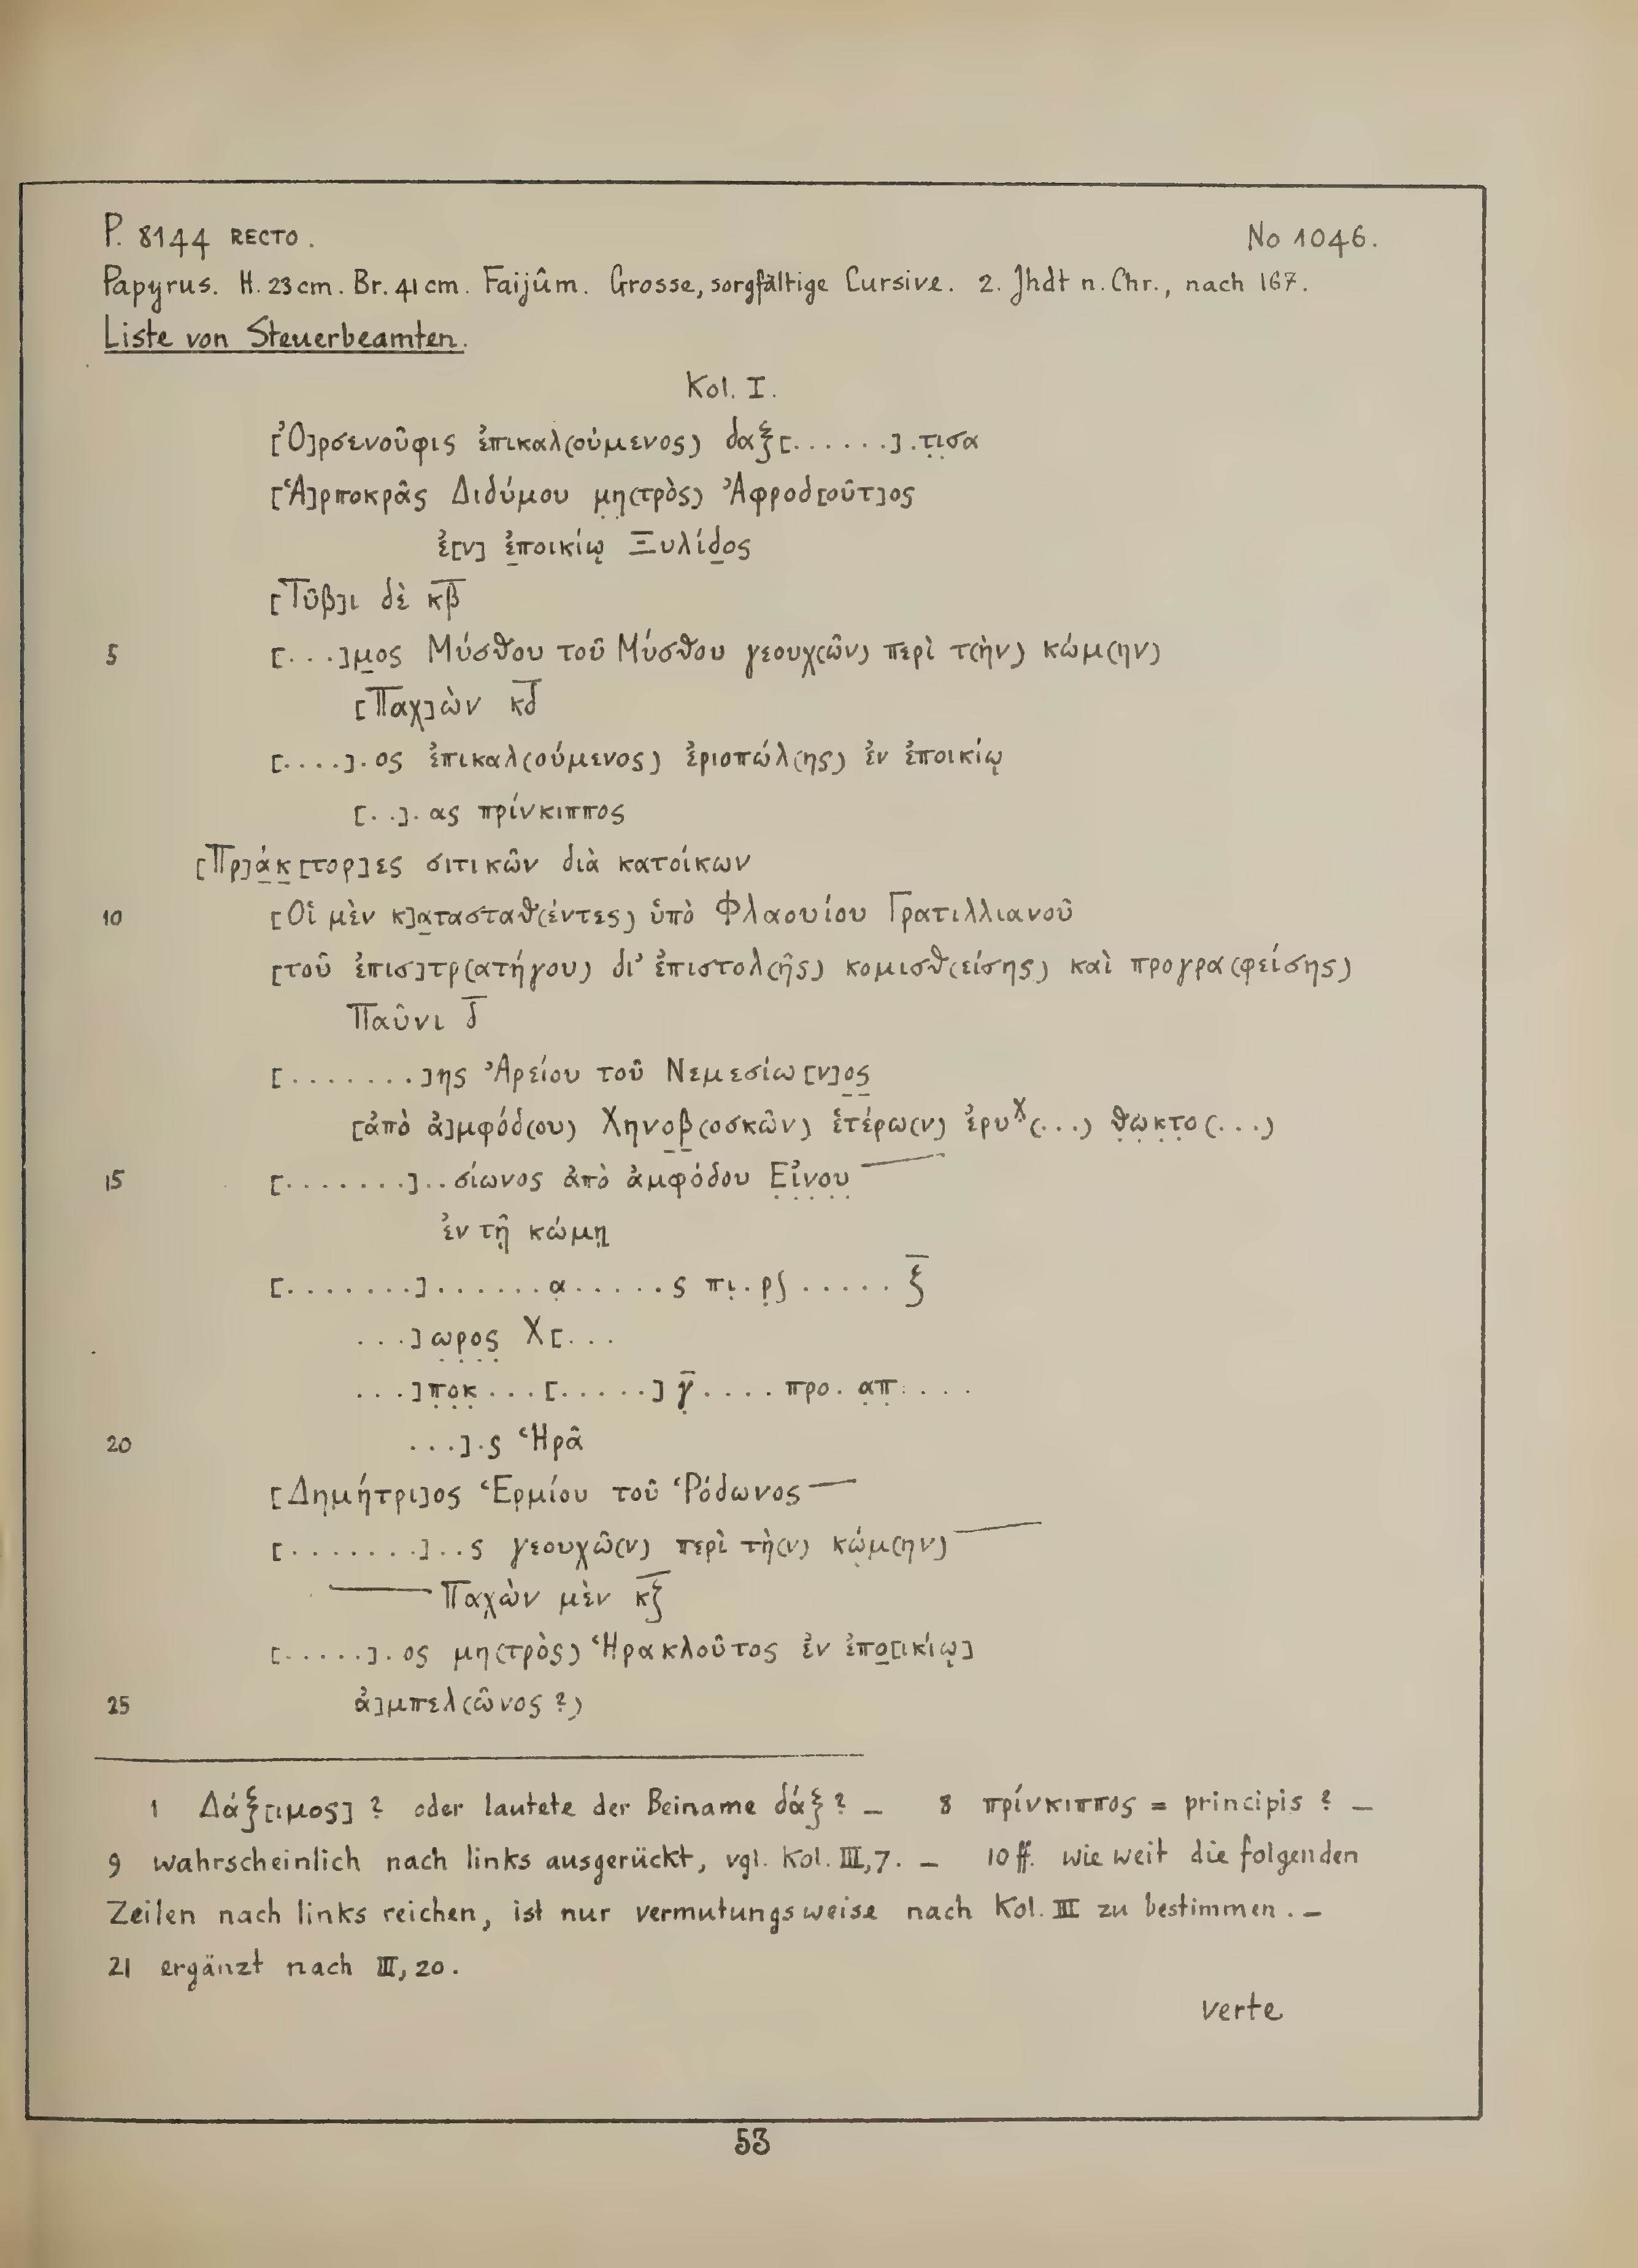 P. 8144 RECTO. No 1046.
Papyrus. H. 23cm. Br. 41cm. Faijûm. Grosse, sorgfältige Cursive. 2. Jhdt n. Chr., nach 167.
Liste von Steuerbeamten.
Kol. I.
[Ὀ]ρσενοῦφις ἐπικαλ(ούμενος) δαξ[......].τ̣ι̣σα
[Ἁ]ρποκρᾶς Διδύμου μ̣η̣(τρὸς) Ἀφροδ[οῦτ]ος
ἐ[ν] ἐποικίῳ Ξυλίδος
[Τῦβ]ι δὲ κ̅β̅
5 [...]μος Μύσθου τοῦ Μύσθου γεουχ(ῶν) περὶ τ(ὴν) κώμ(ην)
[Παχ]ὼν κ̅δ̅
[....].ος ἐπικαλ(ούμενος) ἐριοπώλ(ης) ἐν ἐποικίῳ
[..].ας πρίνκιππος
[Πρ]άκ[τορ]ες σιτικῶν διὰ κατοίκων
10 [Οἱ μὲν κ]ατασταθ(έντες) ὑπὸ Φλαουίου Γρατιλλιανοῦ
[τοῦ ἐπισ]τρ(ατήγου) δι’ ἐπιστολ(ῆς) κομισθ(είσης) καὶ προγρα(φείσης)
Παῦνι δ̅
[.......]ης Ἀρείου τοῦ Νεμεσίω[ν]ος
[ἀπὸ ἀ]μφόδ(ου) Χηνοβ(οσκῶν) ἑτέρω(ν) ἐρυχ̣(...) θ̣ω̣κ̣τ̣ο(...)
15 [.......]..σίωνος ἀπὸ ἀμφόδου Ε̣ἴ̣ν̣ο̣υ̣ —
ἐν τῇ κώμῃ
[.......]......α̣.....ς πι̣.ρ̣ʃ.....ξ̅
...]ω̣ρ̣ο̣ς̣ Χ[...
...]π̣ο̣κ̣...[.....]γ̣̅....προ.α̣π̣....
20 ...].ς Ἡρᾶ
[Δημήτρι]ος Ἑρμίου τοῦ Ῥόδωνος —
[.......]..ς γεουχῶ(ν) περὶ τὴ(ν) κώ̣μ(ην) —
— Παχὼν μὲν κ̅ξ̅
[.....].ος μη(τρὸς) Ἡρακλοῦτος ἐν ἐπο[ικίῳ]
25 ἀ]μπελ(ῶνος ?)
1 Δάξ[ιμος] ? oder lautete der Beiname δάξ ? — 8 πρίνκιππος = principis ? —
9 wahrscheinlich nach links ausgerückt, vgl. Kol. III,7. — 10ff. wie weit die folgenden
Zeilen nach links reichen, ist nur vermutungsweise nach Kol. III zu bestimmen. —
21 ergänzt nach III, 20.
verte
53